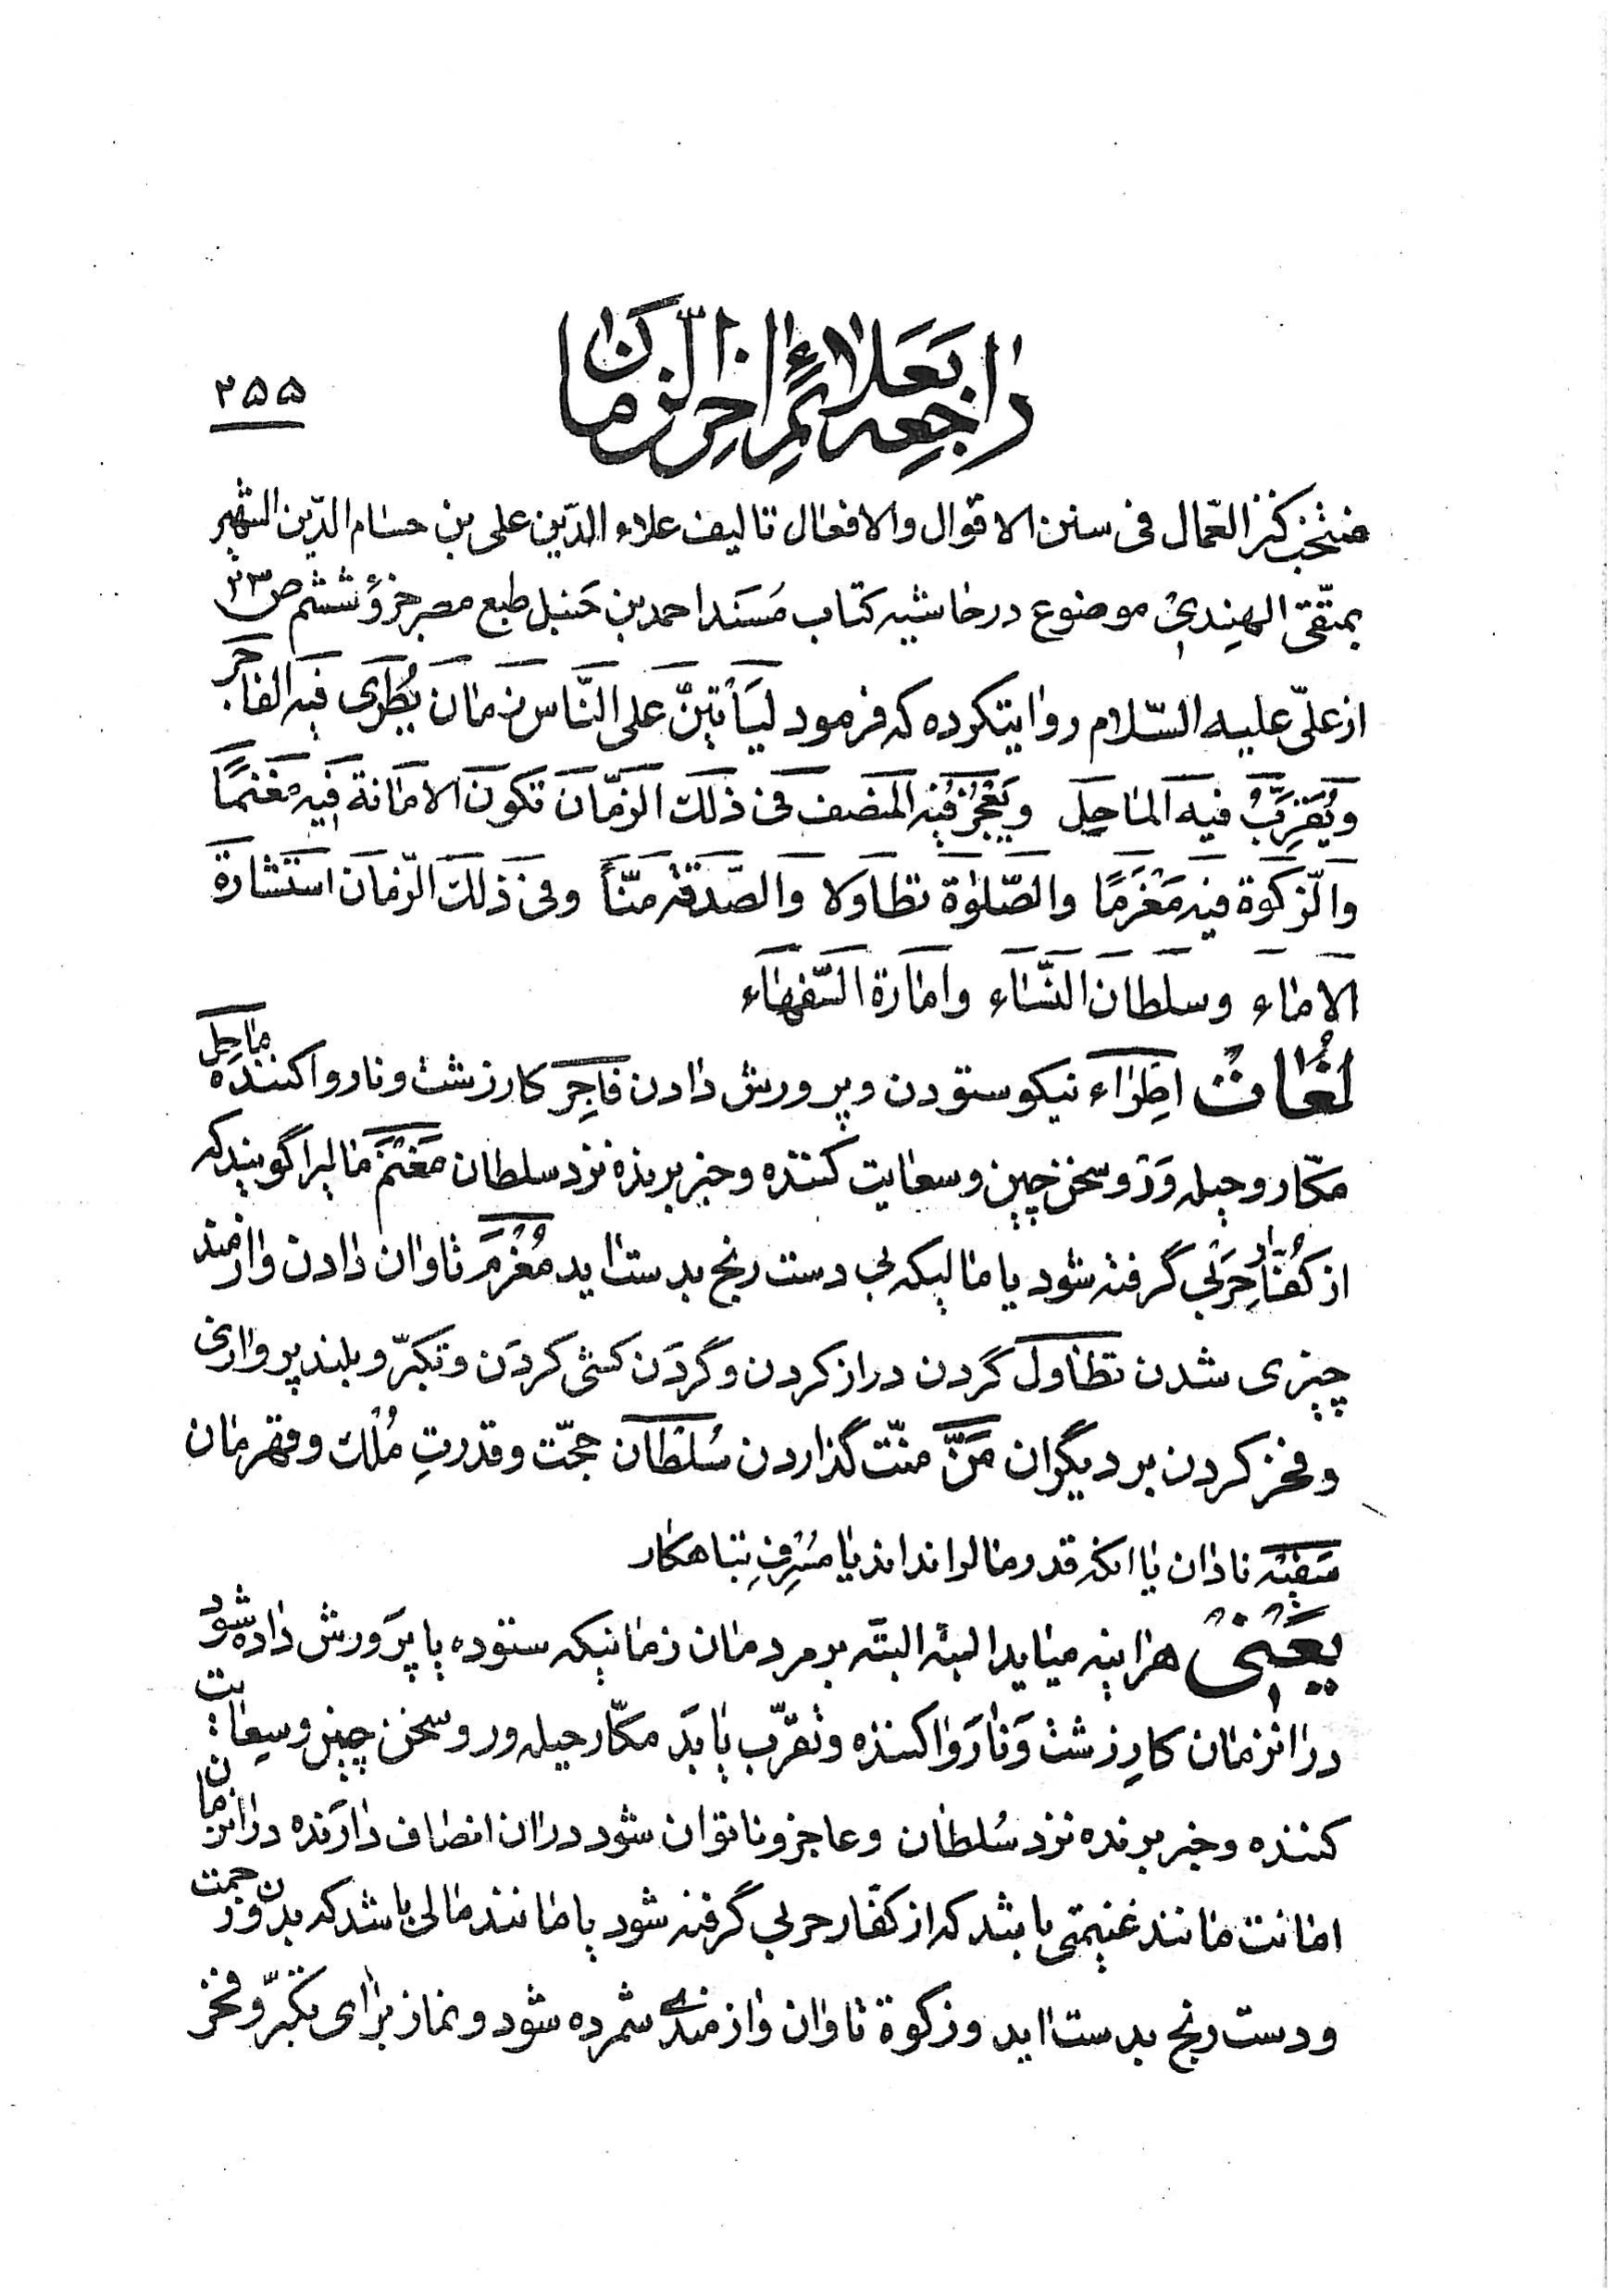 راجعه بعلائم اخر الزمان
۲۵۵
منتخب كنز العمّال فى سنن الاقوال والافعال تاليف علاء الدّين على بن حسام الدّين الشهير
بمتّقى الهندى موضوع درحاشيه كتاب مُسنَد احمد بن حَنبل طبع مصر جزؤ ششم ص ۲۳
از علىّ عليه السّلام روايتكرده كه فرمود ليَأتيَنَّ عَلى النّاس زمان يُطرَى فيه الفاجر
وَيُقَرَّبُ فيه الماحِل ويَعْجُزُ فيه المنصف فى ذلك الزمّان تكون الامانة فيه مَغنمًا
والزّكوة فيه مَغْرَمًا والصّلوٰة تطاولا والصّدقة منّاً وفى ذلك الزّمان استشارة
الاماء وسلطان النّساء وامارة السّفهاء
لُغات اِطراء نيكو ستودن و پرورش دادن فاجِر كار زشت و ناروا كننده ماحِل
مكّار و حيله وَر و سخن چين و سعايت كننده و خبر برنده نزد سلطان مَغْنَم ماليرا گويند كه
از كفّارِ حربى گرفته شود يا ماليكه بى دست رنج بدست ايد مُغْرَم تاوان دادن و ازمند
چيزى شدن تطاول گردن دراز كردن و گردن كشى كردن و تكبّر و بلند پروازى
و فخر كردن بر ديگران مَنّ منّت گذاردن سُلطان حجّت و قدرتِ مُلك و قهرمان
سَفيْه نادان يا انكه قدر مال را نداند يا مُسْرِفِ تباهكار
يَعنى هراينه ميايد البته البتّه بر مردمان زمانيكه ستوده يا پرورش داده شود
در انزمان كارِ زشت وَ نارَوا كننده و تقرّب يابَد مكّار حيله ور و سخن چين و سِعايت
كننده و خبر برنده نزد سُلطان و عاجز و ناتوان شود در ان انصاف دارنده در انزمان
امانت مانند غنيمتى باشد كه از كفّار حربى گرفته شود يا مانند مالى باشد كه بدون زحمت
و دست رنج بدست ايد و زكوة تاوان و ازمندى شمرده شود و نماز براى تكبّر و فخر